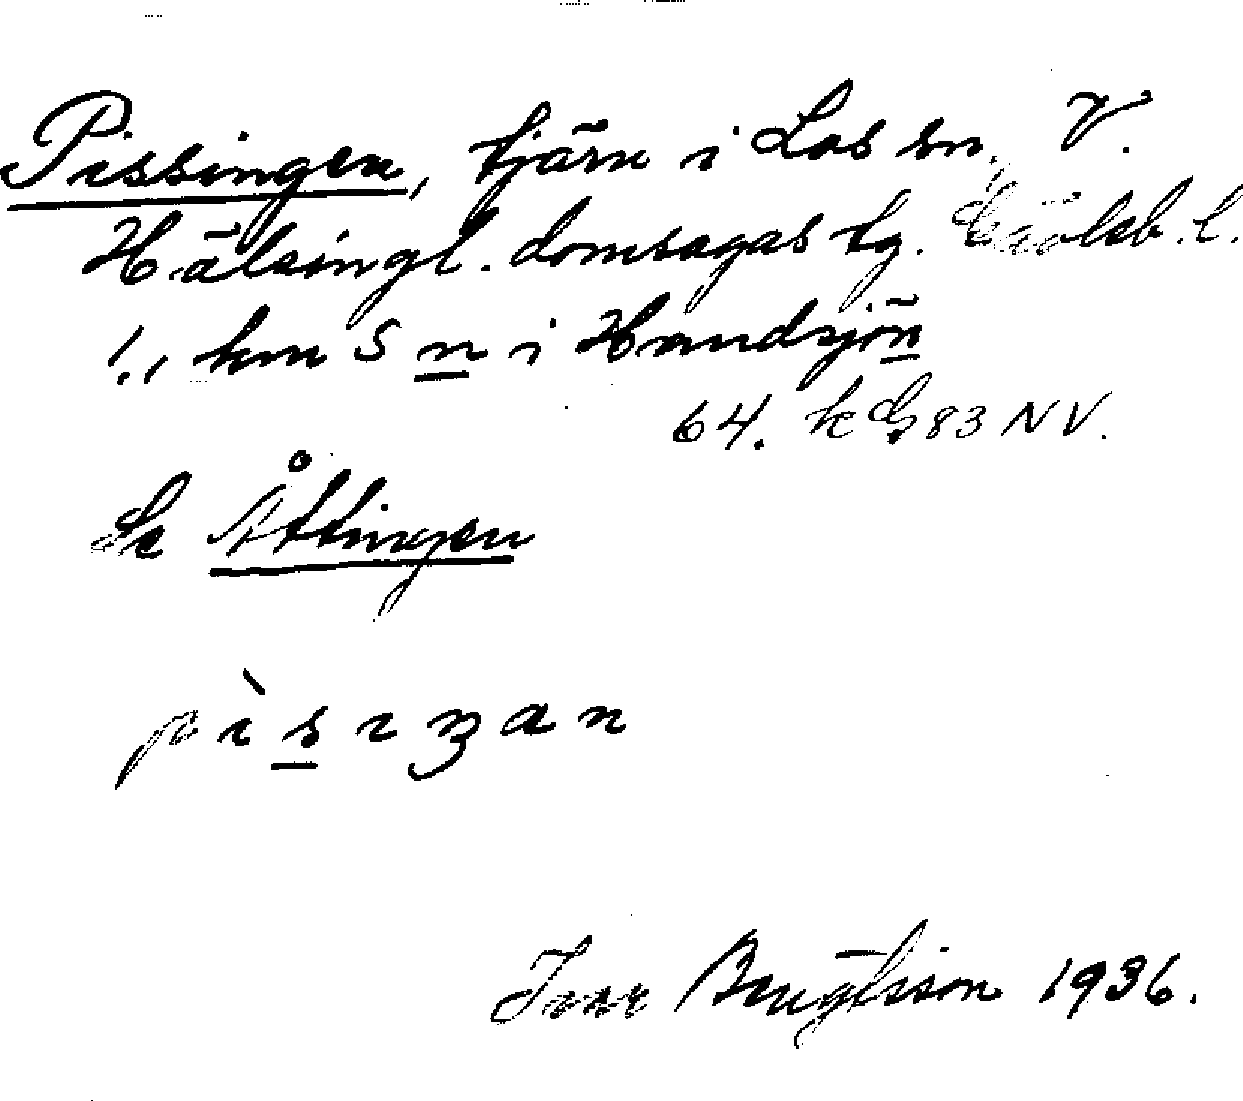 Pissingen, tjärn i Los sn, V.
Hälsingl. domsagas tg. Gävleb. l.
1,1 km S n i Handsjön
64. k G 83 NV.
Se Åttingen
p ì s ɪ ŋ a n
Ivar Bengtsson 1936.